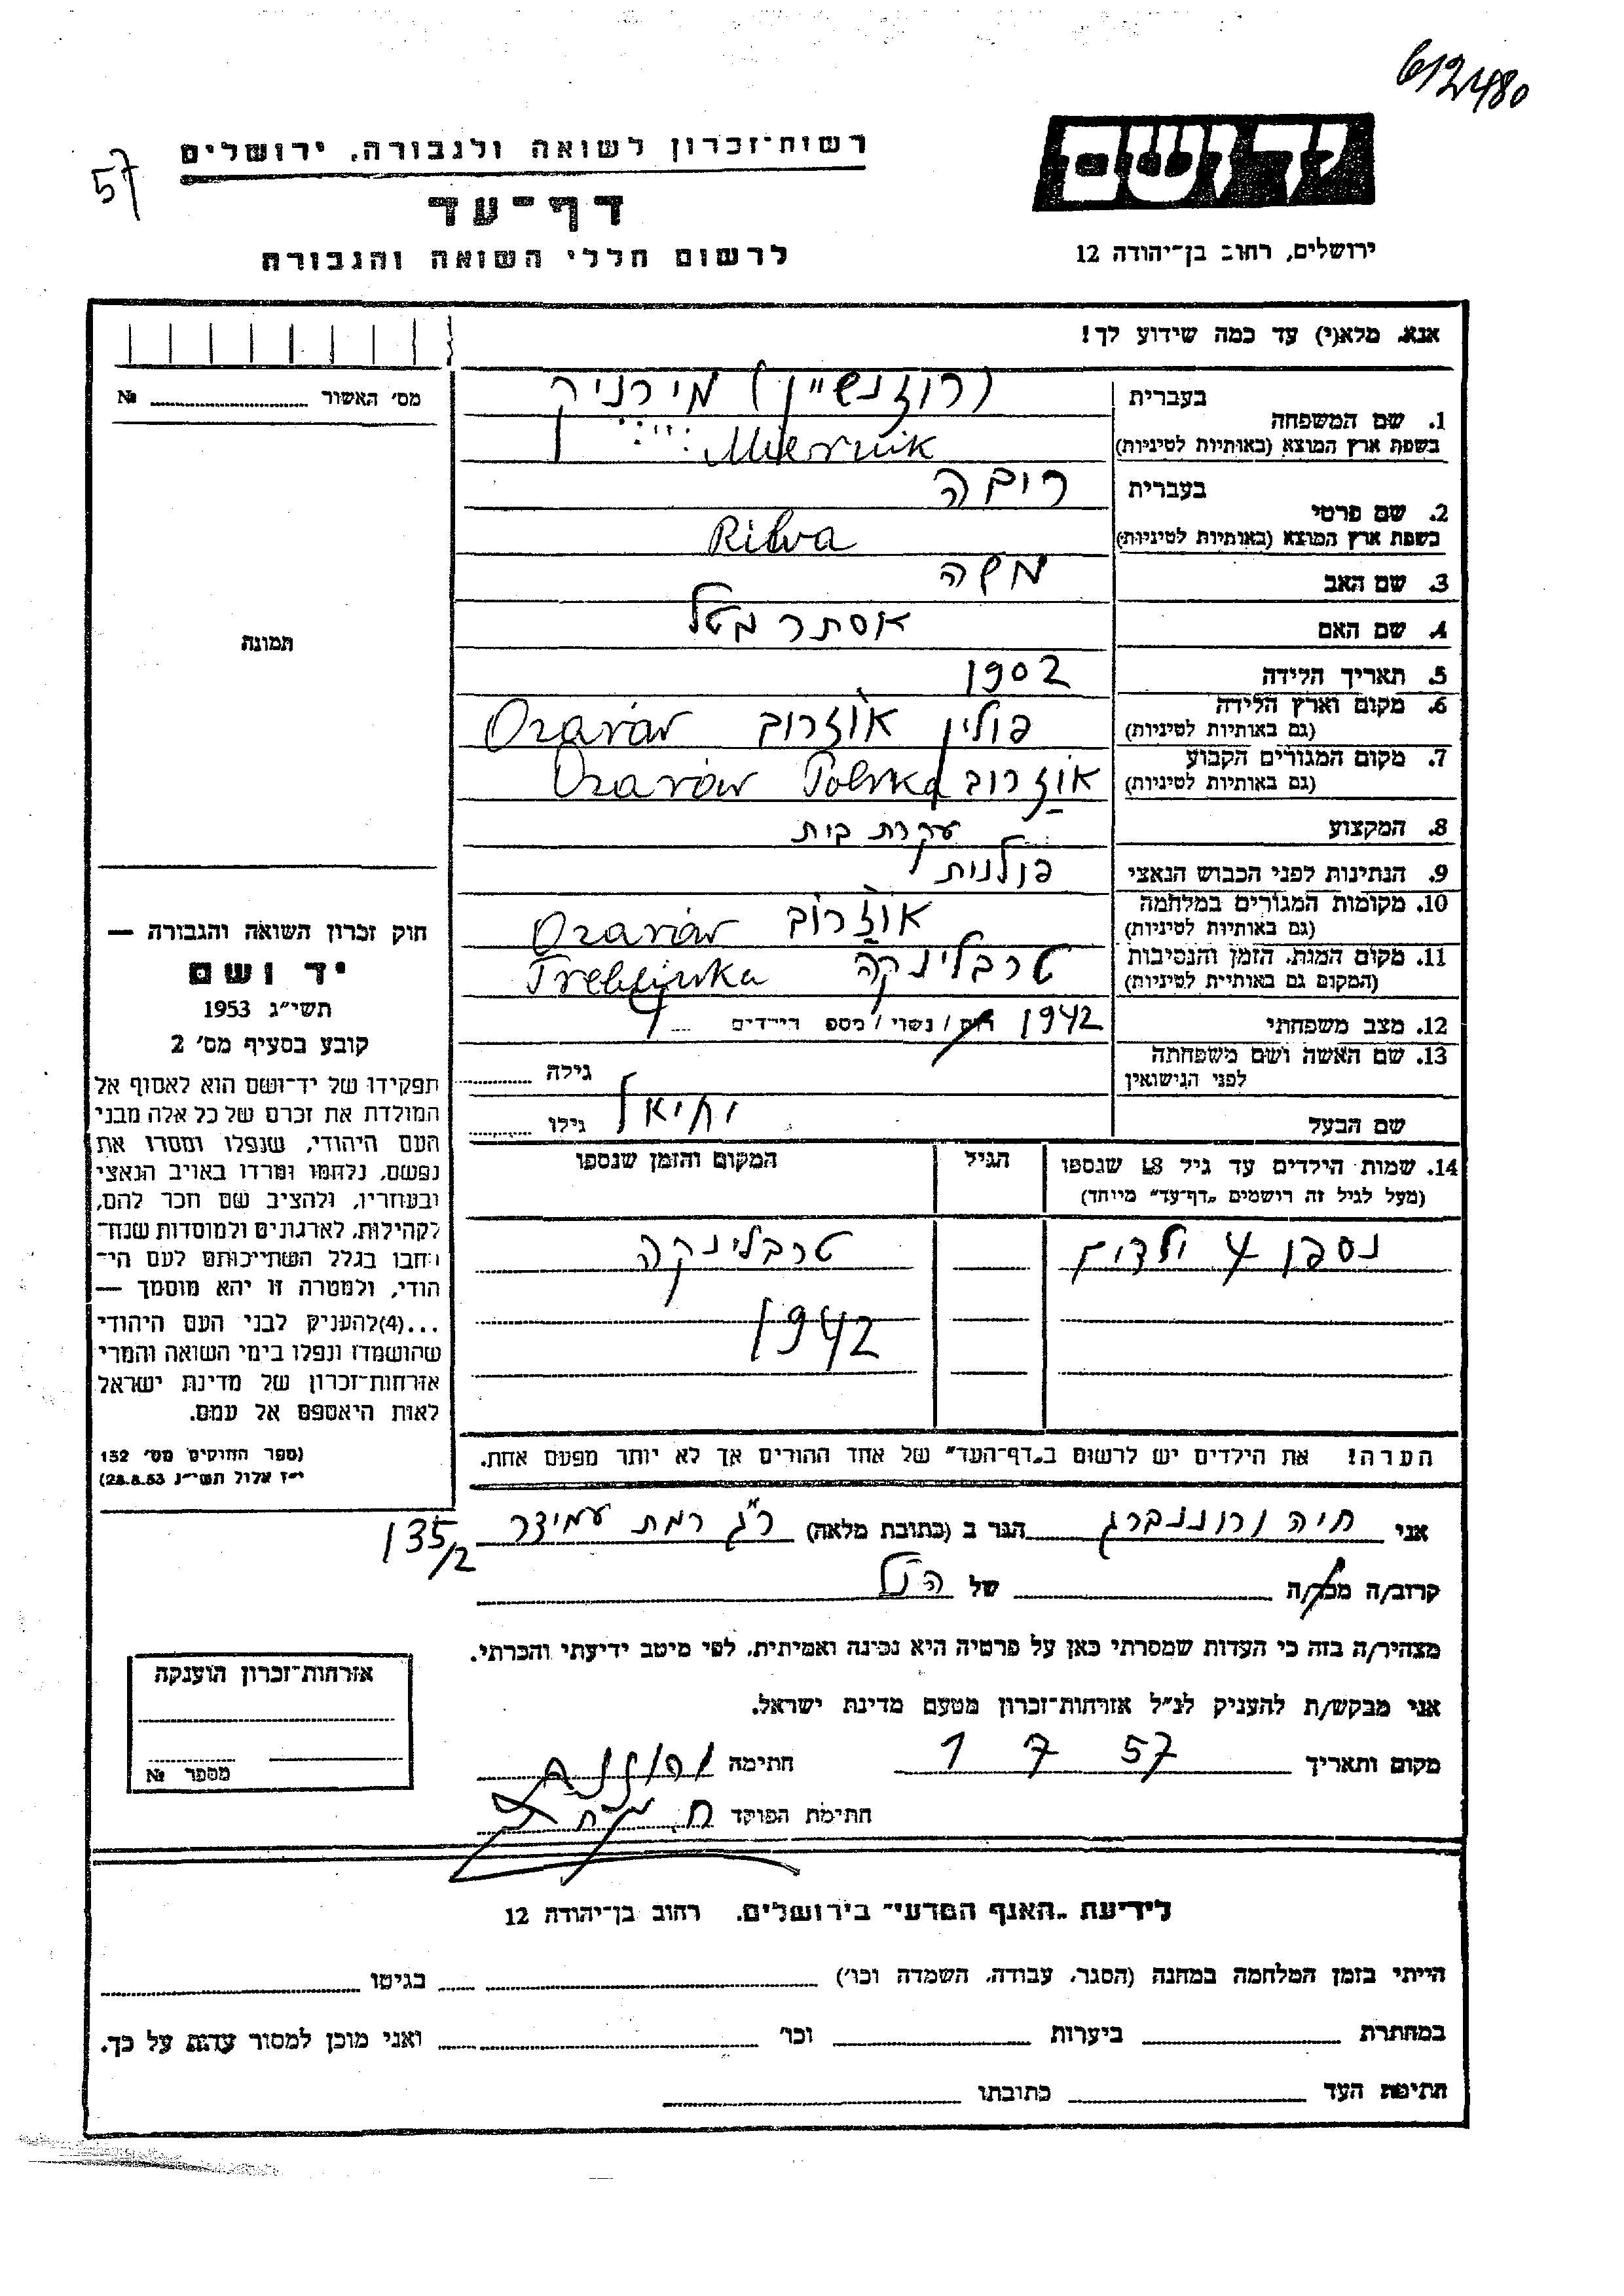 612480
יד ושם
רשות־זכרון לשואה ולגבורה, ירושלים
57
דף־עד
ירושלים, רחוב בן־יהודה 12
לרשום חללי השואה והגבורה
אנא, מלא(י) עד כמה שידוע לך!
מס׳ האשור № ........
1. שם המשפחה
בעברית (רוזנשיין) מירניק
בשפת ארץ המוצא (באותיות לטיניות) Miernik
2. שם פרטי
בעברית ריבה
בשפת ארץ המוצא (באותיות לטיניות) Ribva
3. שם האב משה
4. שם האם אסתר בטל
5. תאריך הלידה 1902
6. מקום וארץ הלידה פולין אוזרוב Ozarów
(גם באותיות לטיניות)
7. מקום המגורים הקבוע אוזרוב Ozarów Polska
(גם באותיות לטיניות)
8. המקצוע עקרת בית
9. הנתינות לפני הכבוש הנאצי פולנית
10. מקומות המגורים במלחמה אוזרוב Ozarów
(גם באותיות לטיניות)
11. מקום המות, הזמן והנסיבות טרבלינקה Treblinka
(המקום גם באותיות לטיניות)
1942
12. מצב משפחתי רווק / נשוי / מספר הילדים 4
13. שם האשה ושם משפחתה
לפני הנישואין גילה
שם הבעל יחיאל גילו
14. שמות הילדים עד גיל 18 שנספו הגיל המקום והזמן שנספו
(מעל לגיל זה רושמים „דף־עד” מיוחד)
נספו 4 ילדים טרבלינקה
1942
הערה! את הילדים יש לרשום ב„דף־העד” של אחד ההורים אך לא יותר מפעם אחת.
תמונה
חוק זכרון השואה והגבורה —
יד ושם
תשי״ג 1953
קובע בסעיף מס׳ 2
תפקידו של יד־ושם הוא לאסוף אל
המולדת את זכרם של כל אלה מבני
העם היהודי, שנפלו ומסרו את
נפשם, נלחמו ומרדו באויב הנאצי
ובעוזריו, ולהציב שם וזכר להם,
לקהילות, לארגונים ולמוסדות שנח־
רבו בגלל השתייכותם לעם היה־
ודי, ולמטרה זו יהא מוסמך —
...(4)להעניק לבני העם היהודי
שהושמדו ונפלו בימי השואה והמרי
אזרחות־זכרון של מדינת ישראל
לאות היאספם אל עמם.
(ספר החוקים מס׳ 132
י״ז אלול תשי״ג 28.8.53)
אני חיה הגר ב (כתובת מלאה) ר״ג רמת עמידר 135/2
קרוב/ה מכר/ה של הנ״ל
מצהיר/ה בזה כי העדות שמסרתי כאן על פרטיה היא נכונה ואמיתית, לפי מיטב ידיעתי והכרתי.
אני מבקש/ת להעניק לנ״ל אזרחות־זכרון מטעם מדינת ישראל.
מקום ותאריך 1 7 57 חתימה
חתימת הפוקד
אזרחות־זכרון הוענקה
מספר №
לידיעת „האגף המדעי” בירושלים, רחוב בן־יהודה 12
הייתי בזמן המלחמה במחנה (הסגר, עבודה, השמדה וכו׳) בגיטו
במחתרת ביערות וכו׳ ואני מוכן למסור עדות על כך.
חתימת העד כתובתו